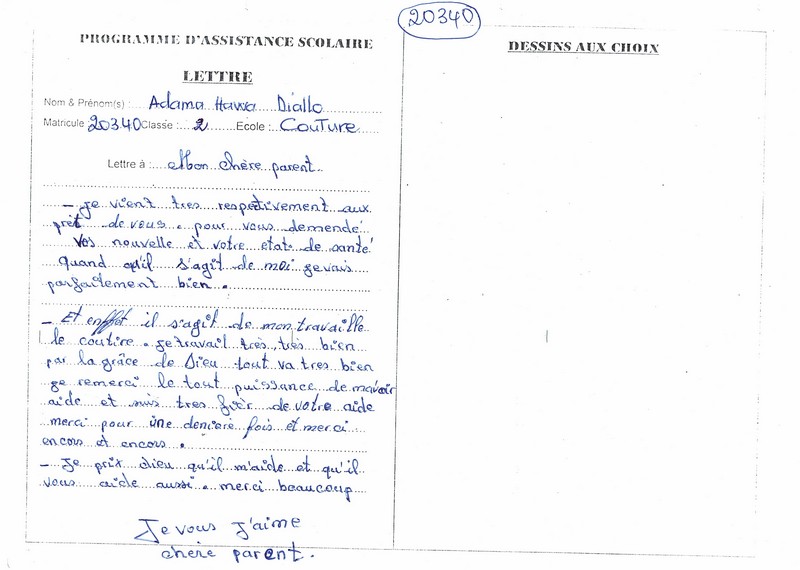 20340
PROGRAMME D'ASSISTANCE SCOLAIRE
LETTRE
Nom & Prénom(s) : Adama Hawa Diallo
Matricule 20340 Classe : 2 Ecole : Couture
Lettre à : Mon chère parent
- Je vient tres respectivement aux
prèt de vous. pour vous demendé
Vos nouvelle et votre etat de santé
quand qu'il s'agit de moi je vais
parfaitement bien.
- Et enffet il s'agit de mon travaille
le coutire. je travail très, très bien
par la grâce de Dieu tout va tres bien
je remerci le tout puissance de mavoir
aide et suis tres fièr de votre aide
merci pour une derniere fois et merci
encors et encors.
- Je prix dieu qu'il m'aide et qu'il
vous aide aussi. merci beaucoup
Je vous j'aime
chère parent.
DESSINS AUX CHOIX